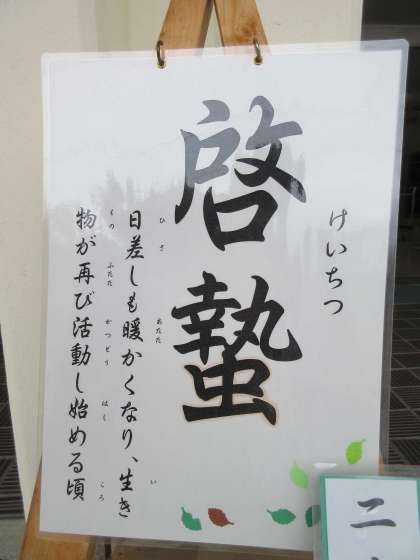 けいちつ
啓蟄
日差しも暖かくなり、生き
ひざ
あたた
い
物が再び活動し始める頃
もの
ふたた
かつどう
はじ
ころ
二